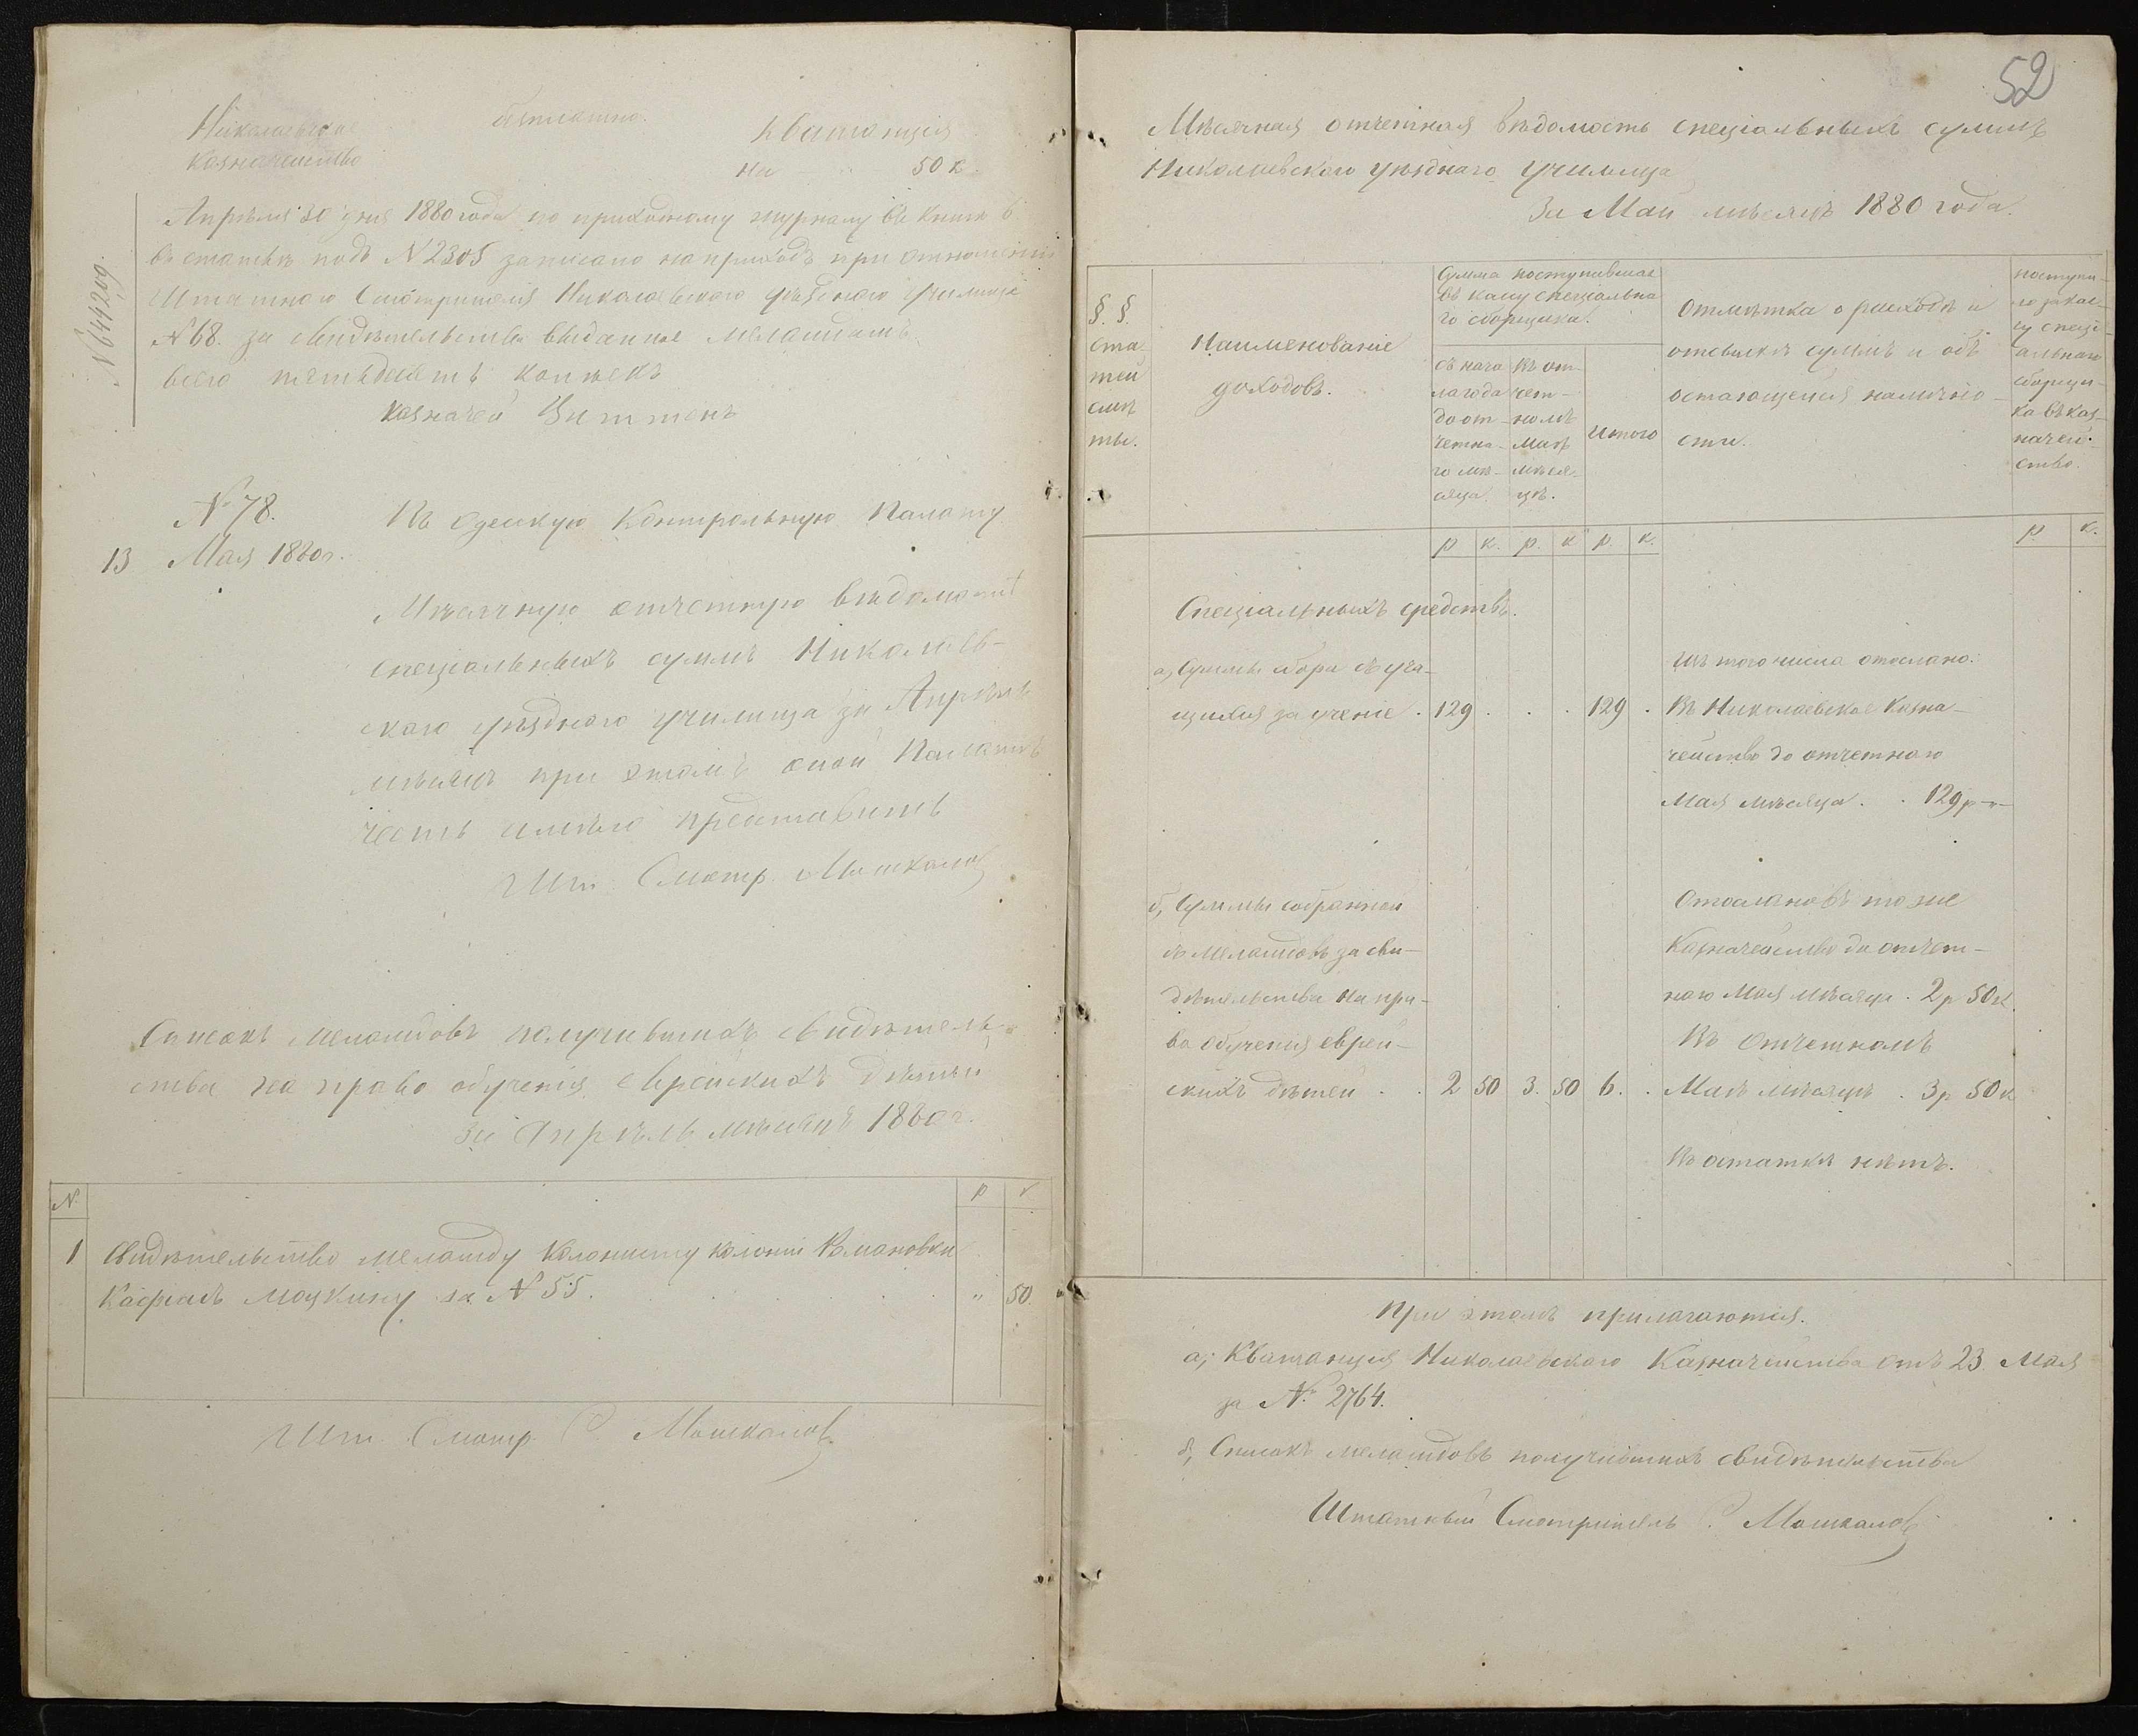 Николаевское
безплатно.
Квитанція
Казначейство
На 50 к.
Апрѣля 30 дня 1880 года по приходному журналу въ книгѣ 6
въ статьѣ подъ № 2305 записано на приходъ при отношеніи
Штатнаго Смотрителя Николаевскаго уѣзднаго училища
№ 68. за свидѣтельства выданныя меламдамъ
всего пятьдесятъ копѣекъ
Казначей
№ 644209.
№ 78.
13 Мая 1880 г.
Въ Одескую Контрольную Палату
Мѣсячную отчетную вѣдомость
спеціальныхъ суммъ Николаев-
скаго уѣзднаго училища за Апрѣль
мѣсяцъ при этомъ оной Палатѣ
честь имѣю представить
Шт. Смотр. Мошкалов
Списокъ меламдовъ получившихъ свидѣтель-
ства на право обученія еврейскихъ дѣтей
За Апрѣль мѣсяцъ 1880 г.
№ р к
1 Свидѣтельство меламду колонисту колоніи Романовки
за № 55. . . . . „ 50.
Шт. Смотр. С. Мошкалов
52
Мѣсячная отчетная вѣдомость спеціальныхъ суммъ
Николаевскаго уѣзднаго училища
За Май мѣсяцъ 1880 года.
§. §.
ста-
тей
смѣ
ты.
Наименованіе
доходовъ.
Сумма поступившая
въ касу спеціальна
го сборщика.
съ нача
ла года
до от-
четна-
го мѣ-
сяца.
Въ от-
чет-
номъ
Маѣ
мѣся-
цѣ.
Итого
Отмѣтка о расходѣ и
отсылкѣ суммъ и объ
остающейся налично-
сти.
поступи-
ло за кас-
су спеці-
альнаго
сборщи-
ка въ каз-
начей-
ство.
р к. р. к р. к. р. к.
Спеціальныхъ средствъ.
а, Суммы сбора съ уча-
щихся за ученіе . 129 . . . 129 .
Изъ того числа отослано:
Въ Николаевское Казна-
чейство до отчетнаго
Мая мѣсяца . . 129 р -"-
б, Суммы собранной
съ меламдовъ за сви-
дѣтельства на пра-
ва обученія еврей-
скихъ дѣтей . . 2 50 3. 50 6. .
Отослано въ то же
Казначейство до отчет-
наго Мая мѣсяца . 2 р 50 к
Въ отчетномъ
Маѣ мѣсяцѣ . 3 р 50 к
Въ остаткѣ нѣтъ.
При этомъ прилагаются.
а, Квитанція Николаевскаго Казначейства отъ 23 Мая
за №. 2764.
б, Списокъ меламдовъ получившихъ свидѣтельства
Штатный Смотритель С. Мошкалов